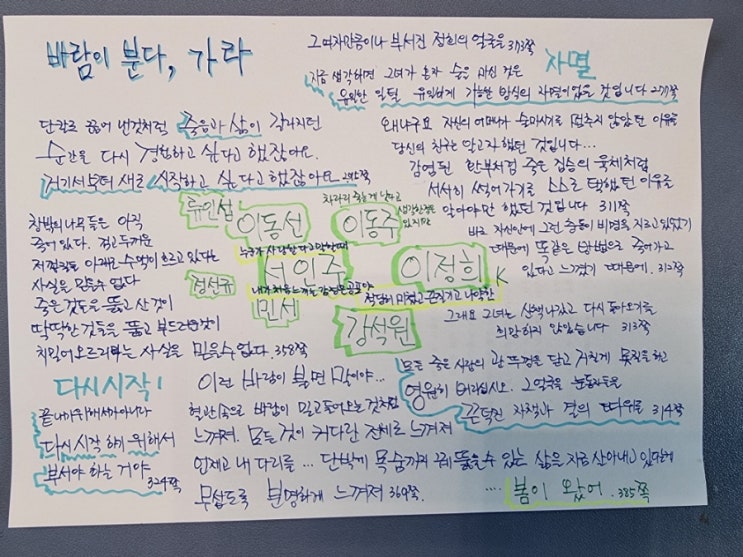 바람이 분다, 가라
그여자만큼이나 부서진 정희의 얼굴을 373쪽
자멸
지금 생각하면 그녀가 혼자 술을 마신 것은
유일한 일탈 유일하게 가능한 방식의 자멸이었을 것입니다 277쪽
단칼로 끊어 낸것처럼 죽음과 삶이 갈라지던
순간을 다시 경험하고 싶다고 했잖아요.
거기서부터 새로 시작하고 싶다고 했잖아요
왜냐구요 자신의 어머니가 술마시기를 멈추지 않았던 이유를
당신의 친구는 알고자 했던 것입니다...
감염된 환부처럼 죽은 짐승의 육체처럼
서서히 썩어가기를 스스로 택했던 이유를
알아야만 했던 것입니다 311쪽
바로 자신안에 그런 충동이 비명을 지르고 있었기
때문에 똑같은 방법으로 죽어가고
있다고 느꼈기 때문에. 312쪽
그래요 그녀는
다시 돌아오기를
희망하지 않았습니다 313쪽
창밖의 나목들은 아직
죽어있다. 검고 두꺼운
저 껍질들 아래로 수액이 흐르고 있다는
사실을 믿을수 없다
죽은 것들을 뚫고 산것이
딱딱한 것들을 뚫고 부드러운것이
치밀어오르리라는 사실을 믿을수 없다. 358쪽
류인섭
이동선
차라리 죽는게 낫다고
생각한적은
있지만
이동주
누군가 사랑한다고 말할때
서인주
이정희
정선규
내가 처음 느끼는 감정은 공포야
민서
K
강석원
모든 죽은 사람의 관 뚜껑을 닫고 거칠게 못질을 하고
영원히 버리십시오. 그 얼룩을 눈동자들을
끈덕진 자책과 결의 따위를 314쪽
다시시작!
끝나기위해서가아니라
다시 시작 하기 위해서
부서야 하는 거야
324쪽
이런 바람이 불면 말이야...
혈관속으로 바람이 밀고들어오는 것처럼
느껴져. 모든 것이 커다란 전체로 느껴져
언제고 내 다리를 ... 단박에 목숨까지 꿰뚫을수 있는 삶을 지금 살아내고 있다는게
무섭도록 분명하게 느껴져 369쪽.
.... 봄이 왔어. 385쪽